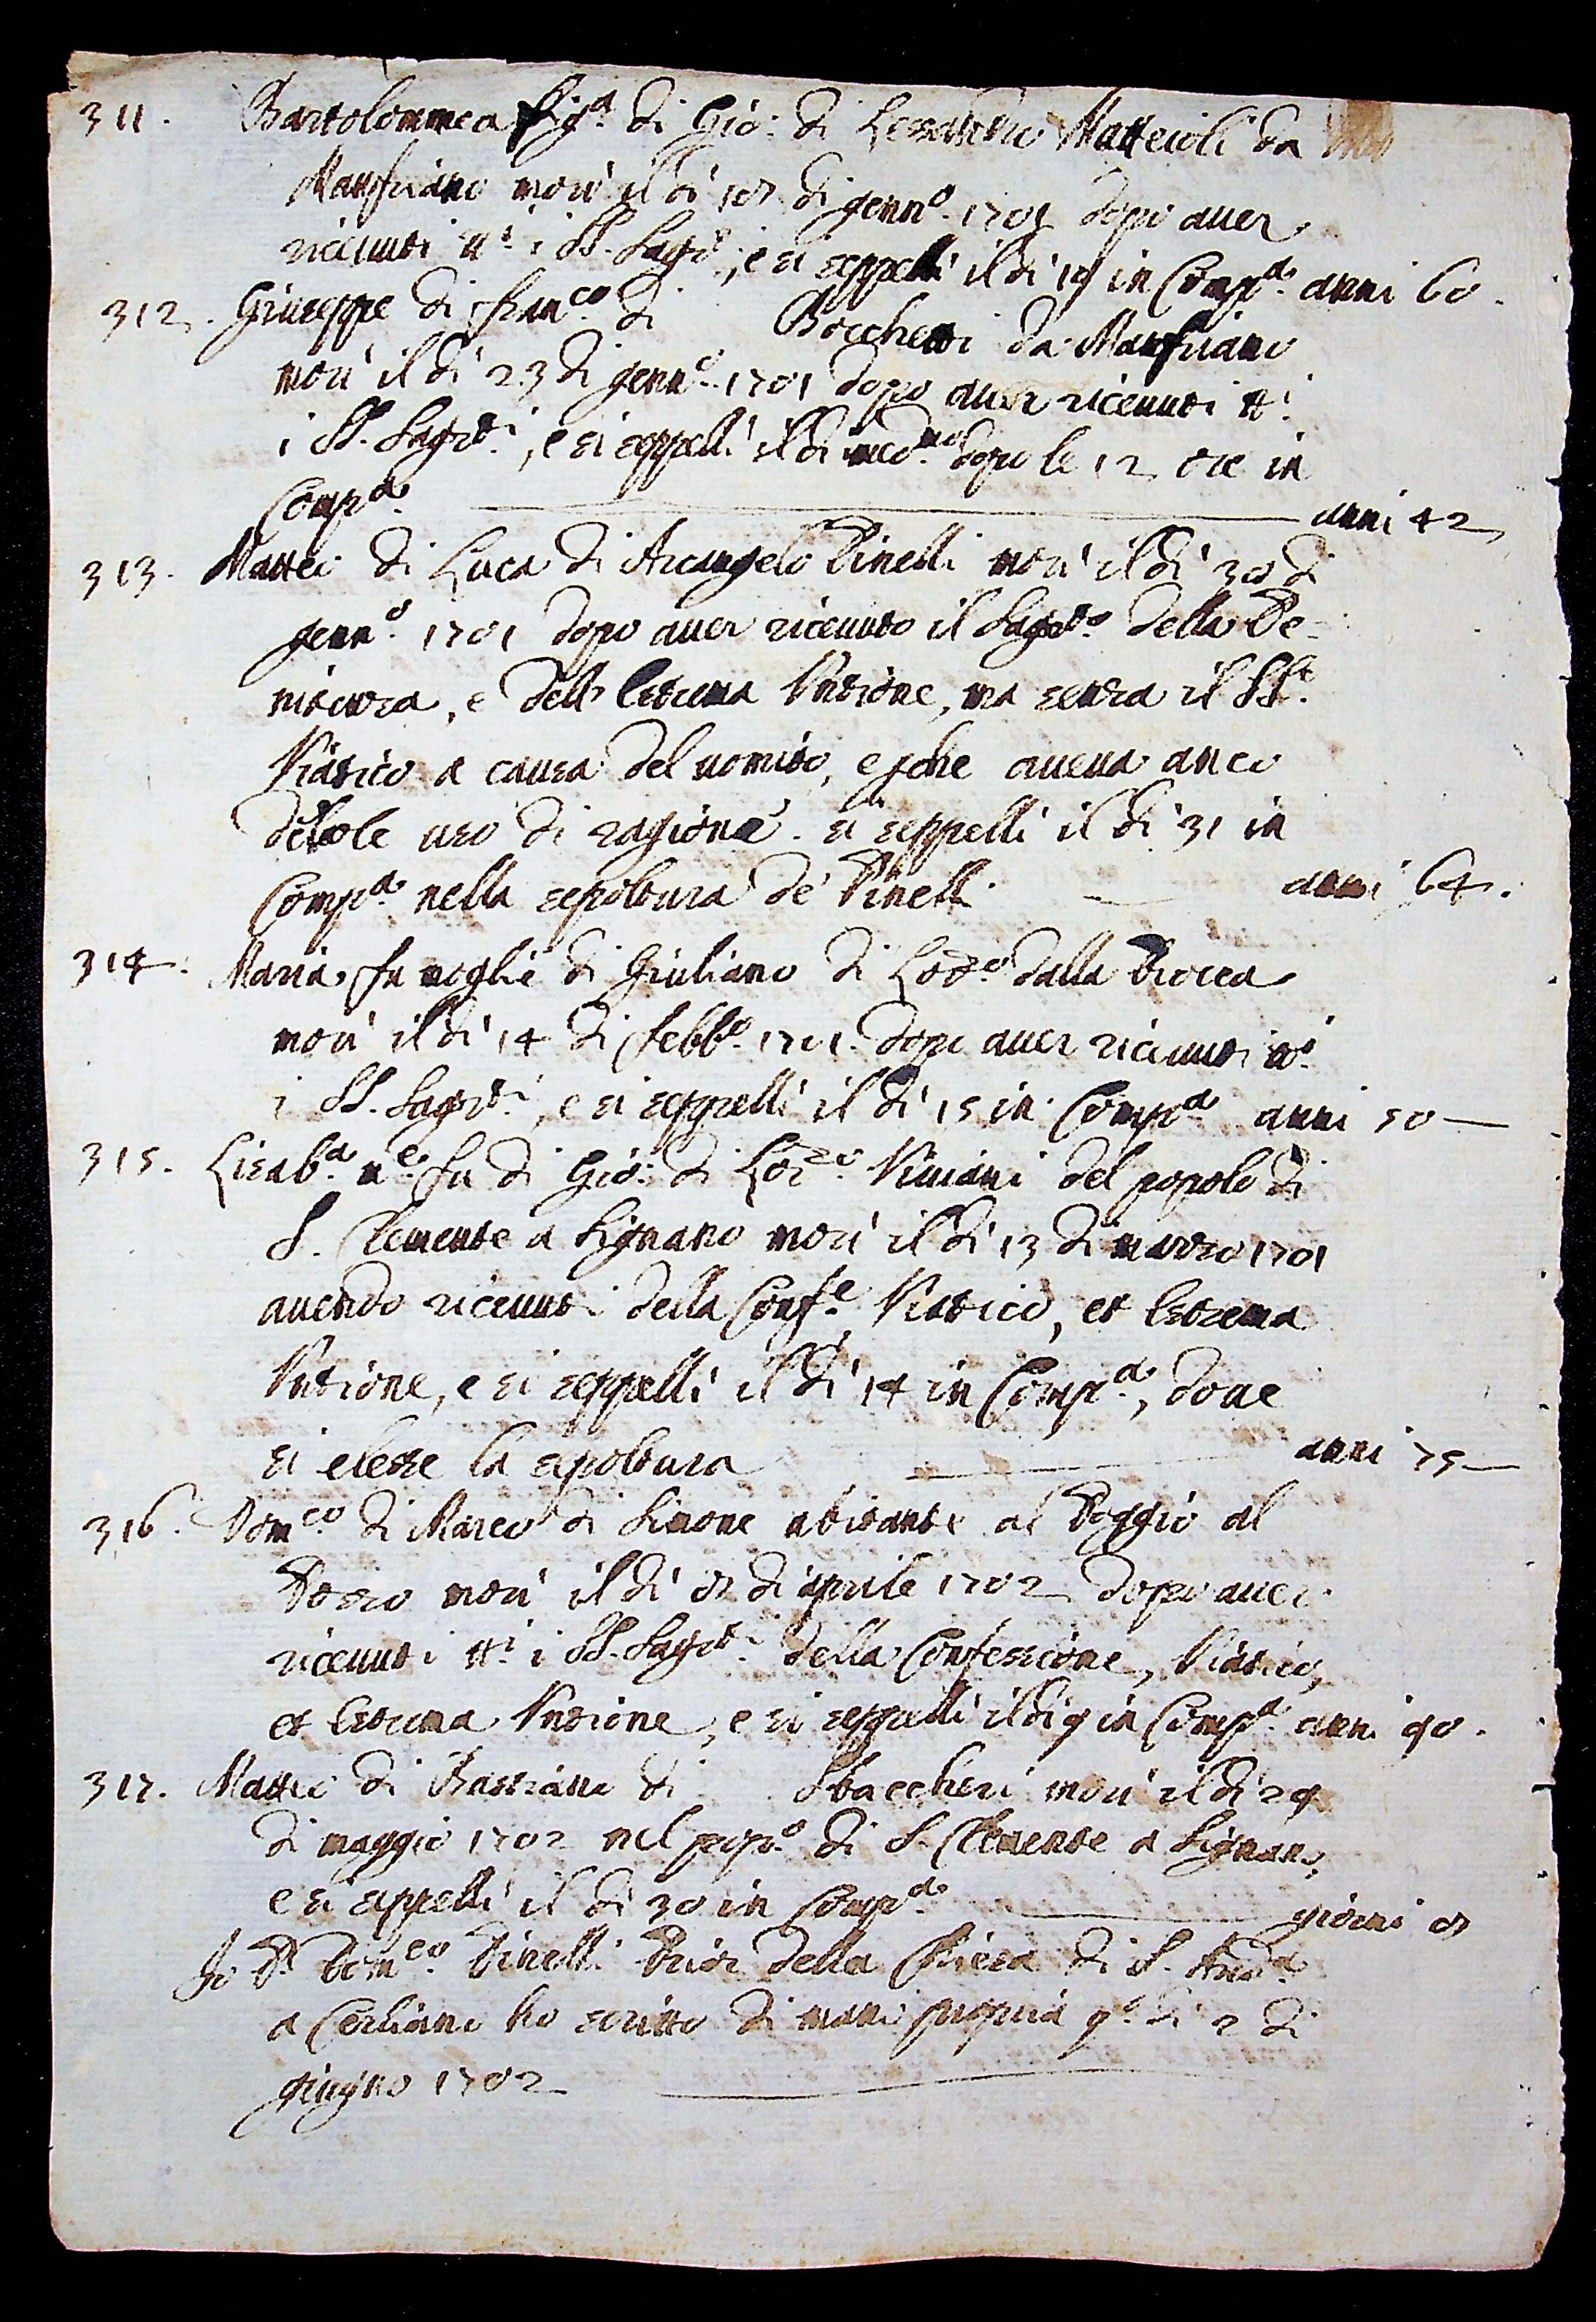 311. Bartolommea fig.a di Gio: di Lessandro Matteioli da
Manfriano morì il dì 18 di genn.o 1701 dopo auer
riceuuti tt.i i SS. Sagr.ti, e si seppellì il dì 19 in Comp.a anni 60.
312. Giuseppe di Fran.co di Bocchetti da Manfriano
morì il dì 23 di genn.o 1701 dopo auer riceuuti tt.i
i SS. Sagr.ti, e si seppellì il dì med.mo dopo le 12 ore in
Comp.a anni 42
313. Matteo di Luca di Arcangelo Pinelli morì il dì 30 di
genn.o 1701 dopo auer riceuuto il Sagr.to della Pe-
nitenza, e dell'Estrema Untione, ma senza il SS.o
Viatico a causa del uomito, e perche aueua anco
debole uso di ragione. si seppellì il dì 31 in
Comp.a nella sepoltura de' Pinelli anni 64.
314. Maria fu moglie di Giuliano di Lor.zo dalla Brocca
morì il dì 14 di febb.o 1701. dopo auer riceuuti tt.i
i SS. Sagr.ti, e si seppellì il dì 15 in Comp.a anni 50
315. Lisab.a u.e fu di Gio: di Lor.zo Viuiani del popolo di
S. Clemente a Signano morì il dì 13 di marzo 1701
auendo riceuuti della Conf.e Viatico, et Estrema
Untione, e si seppellì il dì 14 in Comp.a, doue
si elesse la sepoltura anni 75
316. Dom.co di Marco di Simone abitante al Poggio al
Pozzo morì il dì 8 di aprile 1702 dopo auer
riceuuti tt.i i SS. Sagr.ti della Confessione, Viatico,
et Estrema Untione, e si seppellì il dì 9 in Comp.a anni 90.
317. Matteo di Bastiano di Staccheri morì il dì 29
di maggio 1702 nel pop.o di S. Clemente a Signano,
e si seppellì il dì 30 in Comp.a giorni 8
Io P. Dom.co Pinelli Prior della Chiesa di S. And.a
a Cerliano ho scritto di mano propria q.o dì 2 di
giugno 1702